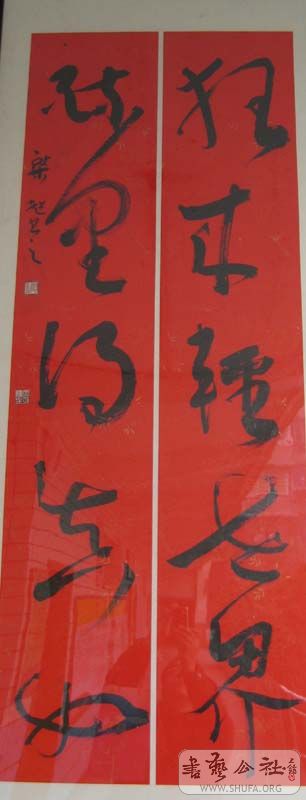 狂来輕世界
醉里得真如
梁
書藝公社
WWW.SHUFA.ORG